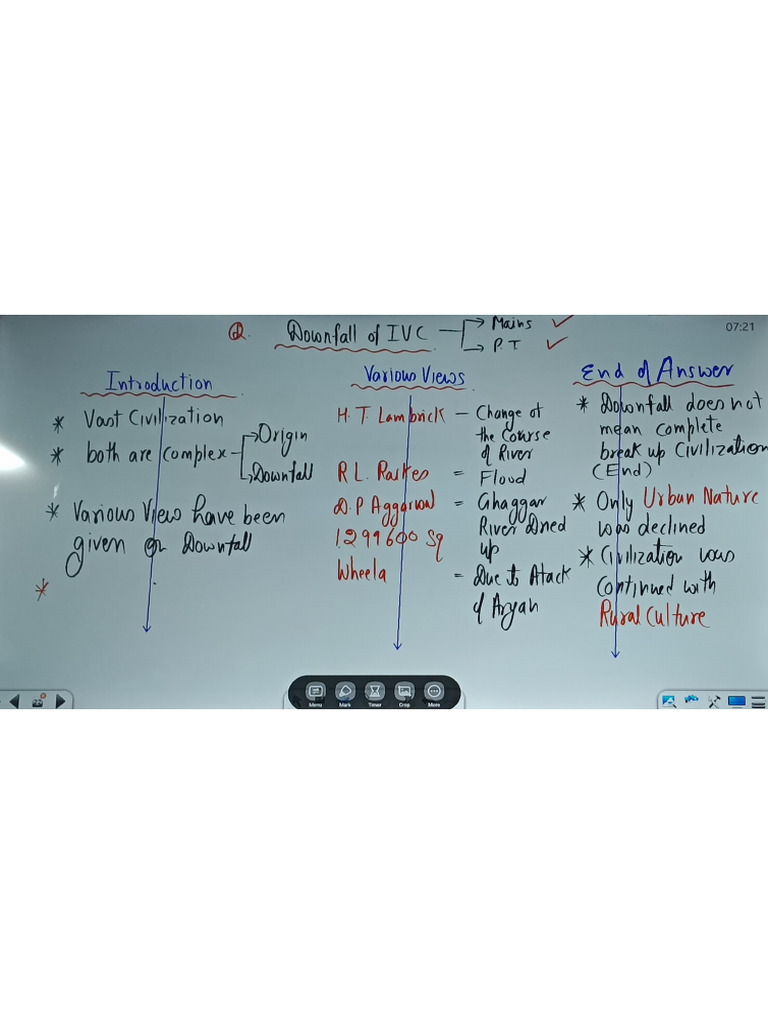 Q. Downfall of IVC → Mains ✓
→ P.T ✓
07:21
Introduction
* Vast Civilization
* both are complex → Origin
→ Downfall
* Various View have been
given on Downfall
*
Various Views
H. T. Lambrick – Change of
the Course
of River
R L. Raikes = Flood
D. P Aggarwal = Ghaggar
River Dried
up
1299600 Sq
Wheela = Due to Atack
of Aryan
End of Answer
* Downfall does not
mean complete
break up Civilization
(End)
* Only Urban Nature
was declined
* Civilization was
Continued with
Rural Culture
Menu Mark Timer Crop More